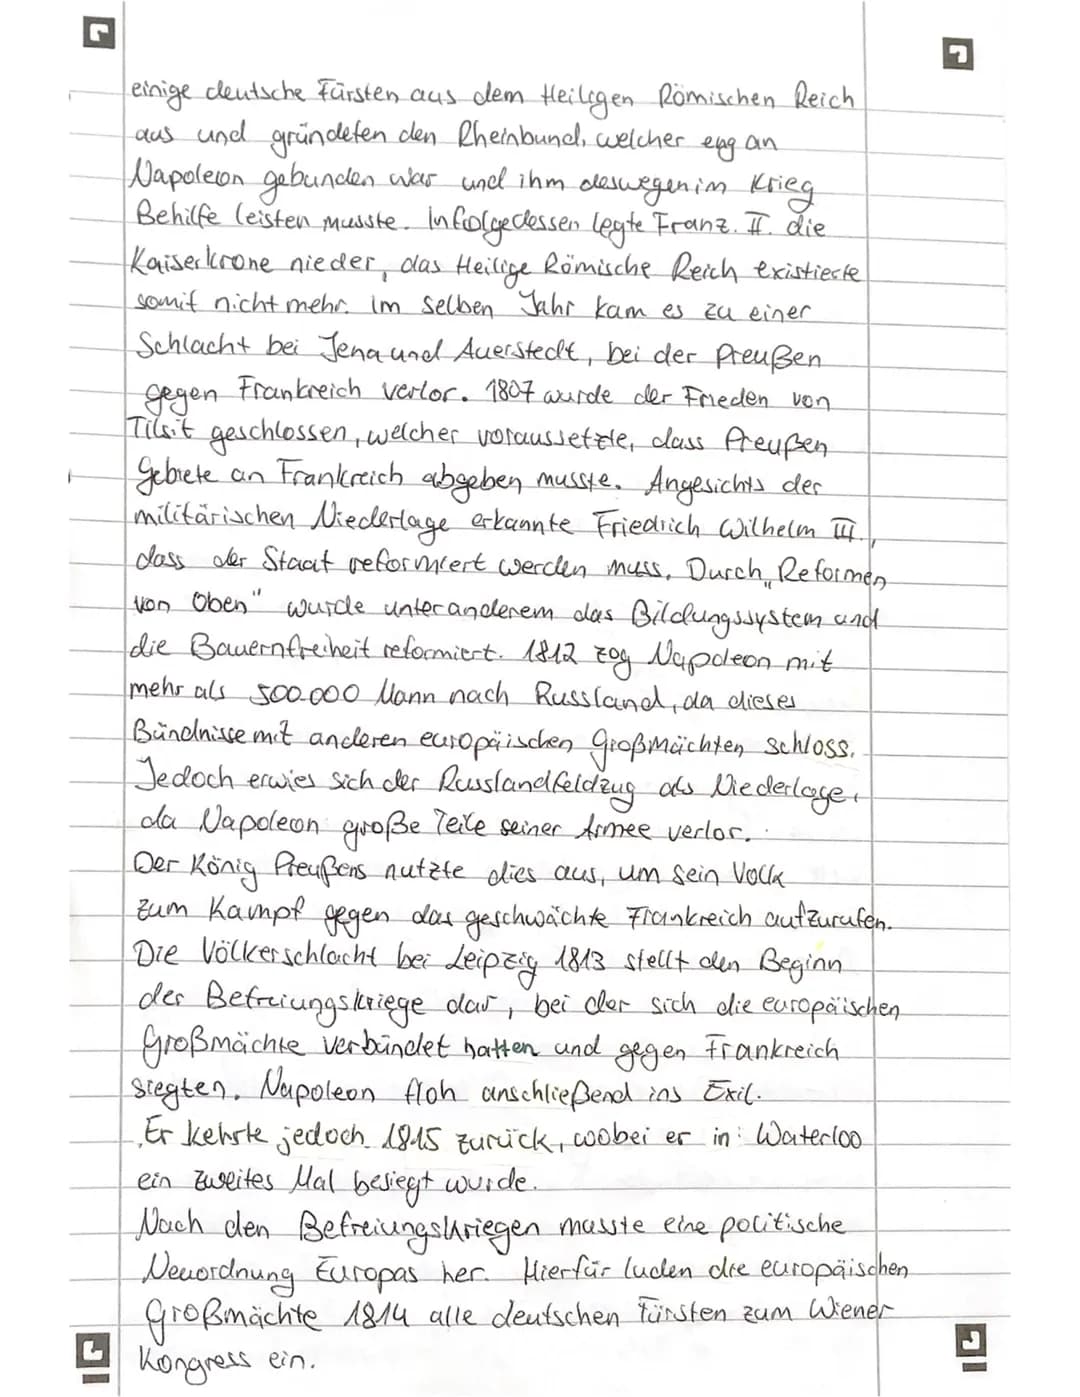 einige deutsche Fürsten aus dem Heiligen Römischen Reich
aus und gründeten den Rheinbund, welcher eng an
Napoleon gebunden war und ihm deswegen im Krieg
Behilfe leisten musste. Infolgedessen legte Franz. II. die
Kaiserkrone nieder, das Heilige Römische Reich existierte
somit nicht mehr. Im selben Jahr kam es zu einer
Schlacht bei Jena und Auerstedt, bei der Preußen
gegen Frankreich verlor. 1807 wurde der Frieden von
Tilsit geschlossen, welcher voraussetzte, dass Preußen
Gebiete an Frankreich abgeben musste. Angesichts der
militärischen Niederlage erkannte Friedrich Wilhelm III.,
dass der Staat reformiert werden muss. Durch „Reformen
von Oben" wurde unter anderem das Bildungssystem und
die Bauernfreiheit reformiert. 1812 zog Napoleon mit
mehr als 500.000 Mann nach Russland, da dieses
Bündnisse mit anderen europäischen Großmächten schloss.
Jedoch erwies sich der Russlandfeldzug als Niederlage,
da Napoleon große Teile seiner Armee verlor.
Der König Preußens nutzte dies aus, um sein Volk
zum Kampf gegen das geschwächte Frankreich aufzurufen.
Die Völkerschlacht bei Leipzig 1813 stellt den Beginn
der Befreiungskriege dar, bei der sich die europäischen
Großmächte verbündet hatten und gegen Frankreich
siegten. Napoleon floh anschließend ins Exil.
Er kehrte jedoch 1815 zurück, wobei er in Waterloo
ein zweites Mal besiegt wurde.
Nach den Befreiungskriegen musste eine politische
Neuordnung Europas her. Hierfür luden die europäischen
Großmächte 1814 alle deutschen Fürsten zum Wiener
Kongress ein.